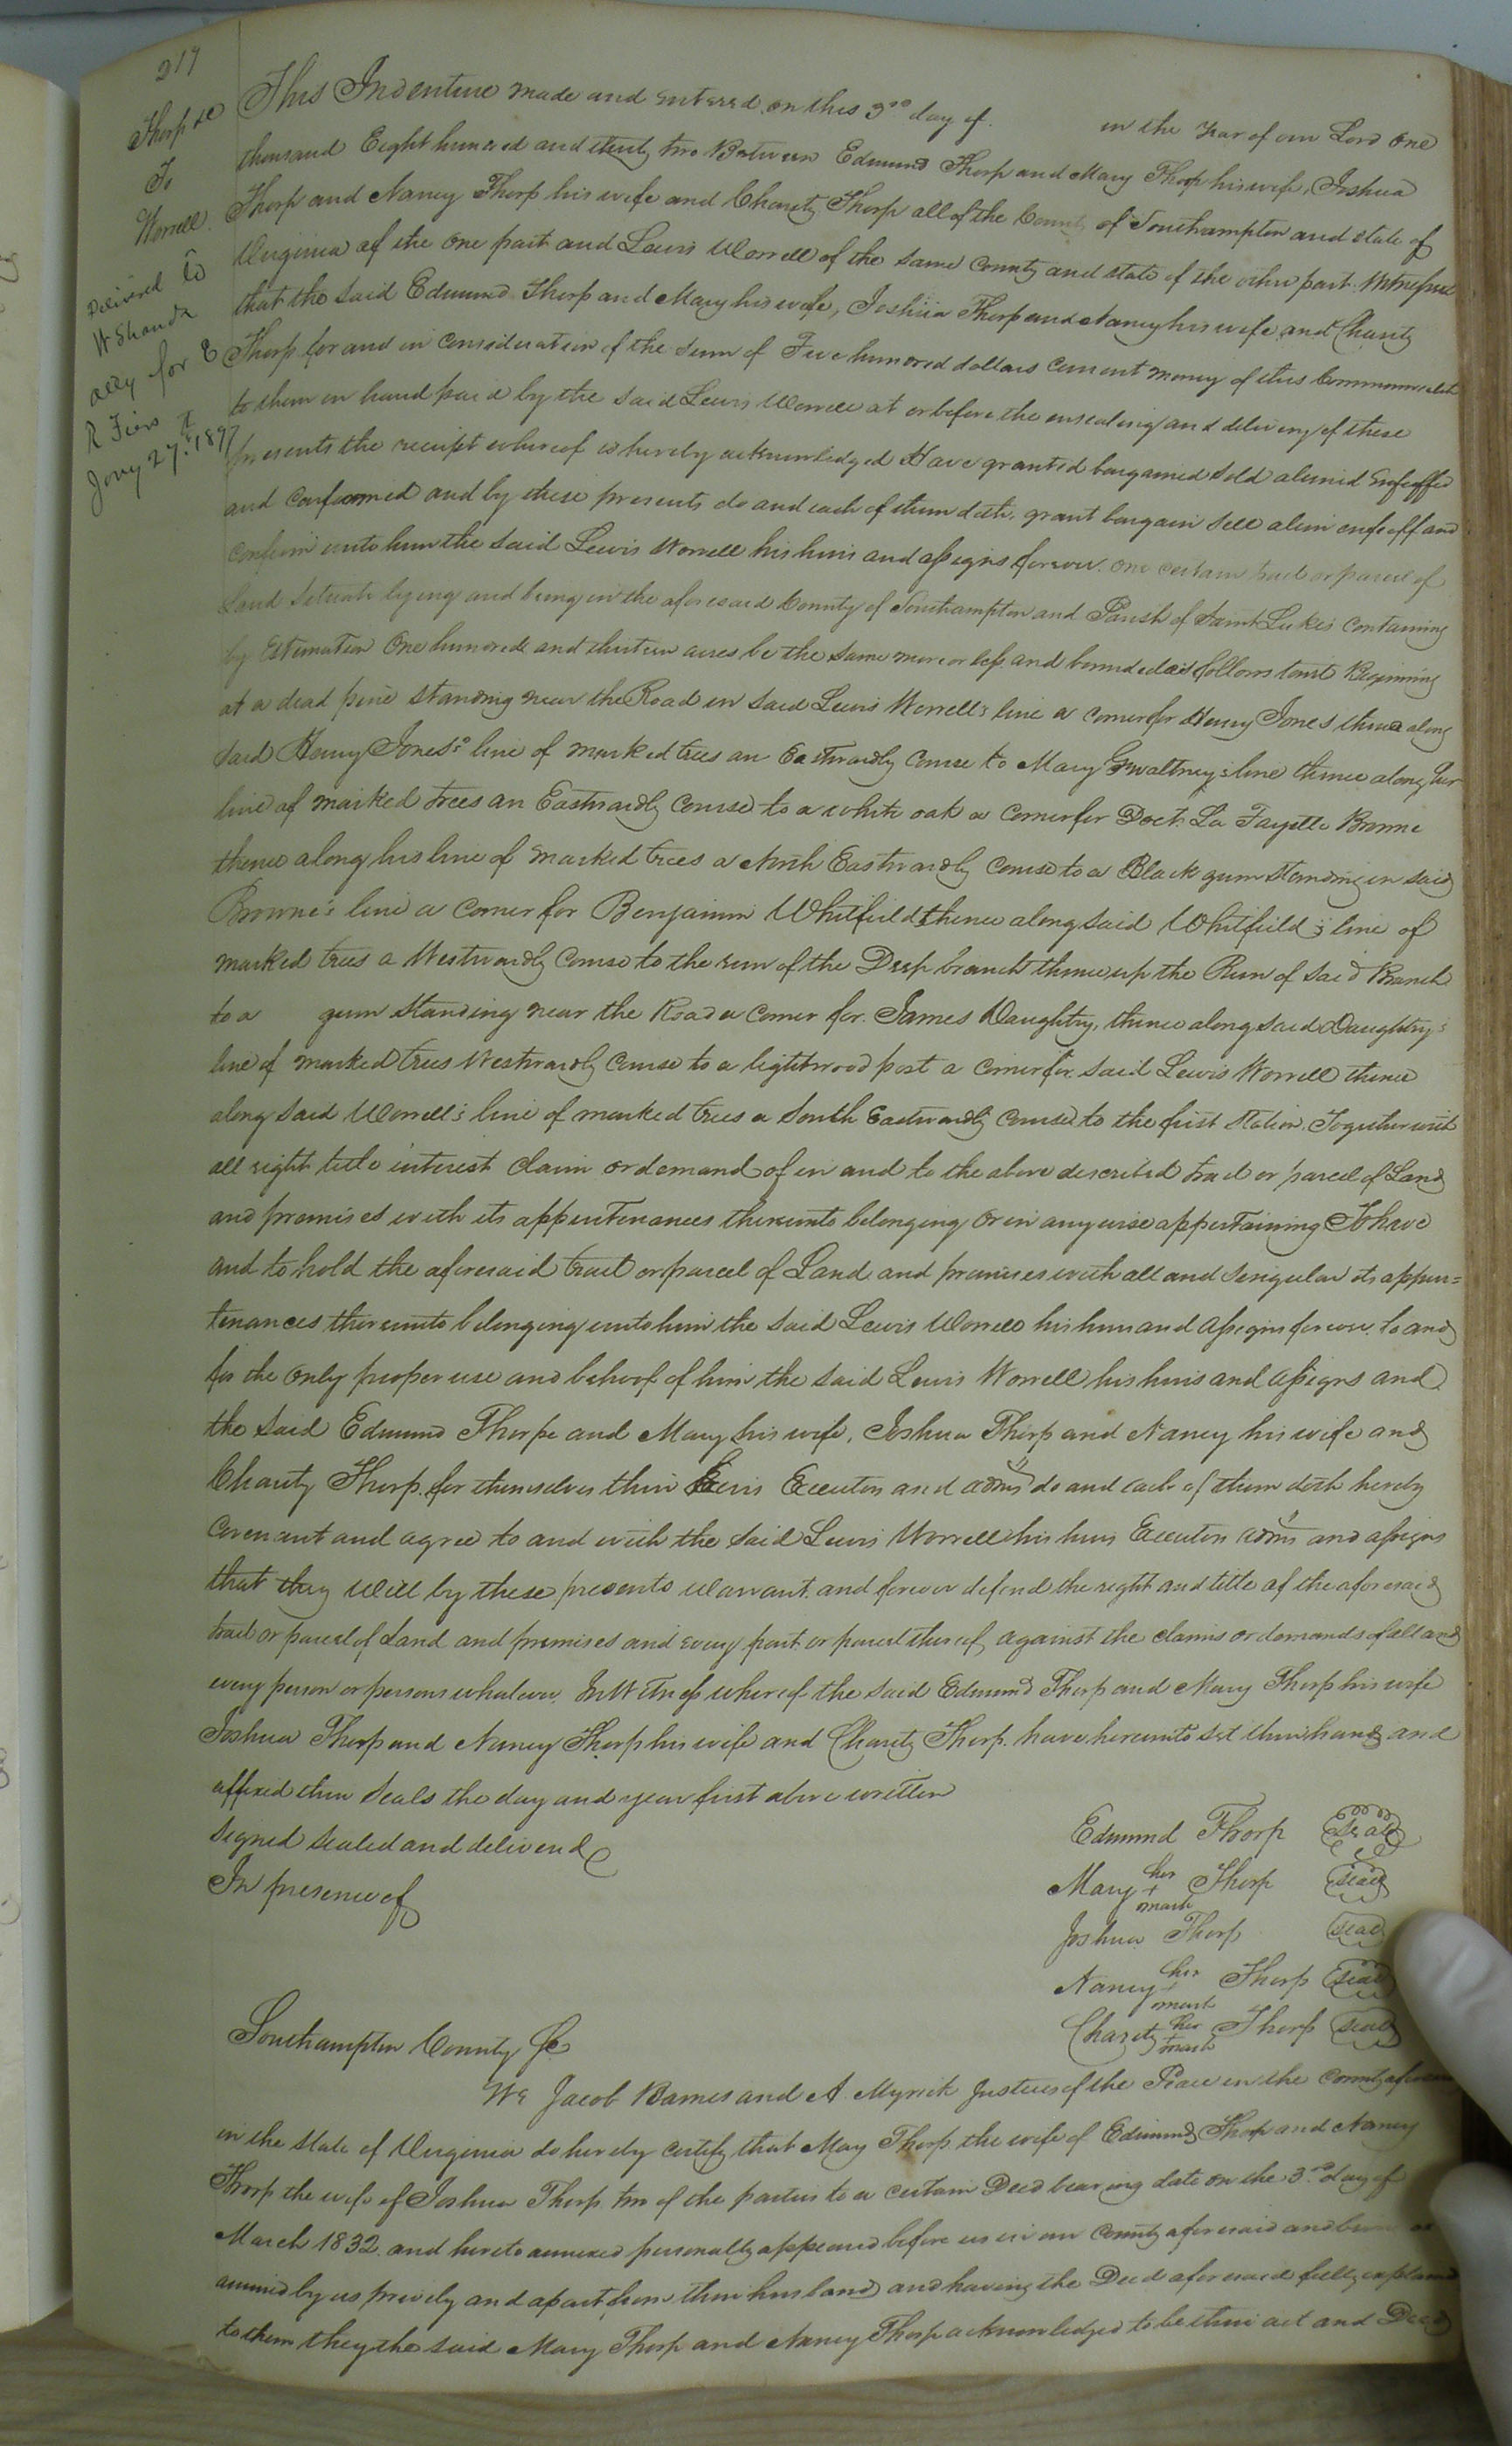 217
Thorp &c
To
Worrell.
Delivered to
W Shands
atty for E
R Fiers
Jany 27th 1897
This Indenture made and entered on this 3rd day of in the Year of our Lord One
thousand Eight hundred and thirty two Between Edmund Thorp and Mary Thorp his wife, Joshua
Thorp and Nancy Thorp his wife and Charity Thorp all of the County of Southampton and state of
Virginia of the one part and Lewis Worrell of the same County and state of the other part Witnesseth
that the said Edmund Thorp and Mary his wife, Joshua Thorp and Nancy his wife and Charity
Thorp for and in consideration of the sum of hundred dollars current money of this Commonwealth
to them in hand paid by the said Lewis Worrell at or before the ensealing and delivery of these
presents the receipt whereof is hereby acknowledged Have granted bargained sold aliened Enfeoffed
and confirmed and by these presents do and each of them doth, grant bargain sell alien enfeoff and
confirm unto him the said Lewis Worrell his heirs and assigns forever. one certain tract or parcel of
Land situate lying and being in the aforesaid County of Southampton and Parish of Saint Lukes containing
by Estimation One hundred and thirteen acres be the same more or less and bounded as follows towit Beginning
at a dead pine standing near the Road in said Lewis Worrell's line a corner for Henry Jones thence along
said Henry Jones's line of marked trees an Eastwardly course to Mary Gwaltney's line thence along her
line of marked trees an Eastwardly course to a white oak a corner for Doct. La Fayette Browne
thence along his line of marked trees a North Eastwardly course to a Black gum standing in said
Browne's line a corner for Benjamin Whitfield thence along said Whitfield's line of
marked trees a Westwardly course to the run of the Deep branch thence up the Run of said Branch
to a gum standing near the Road a corner for James Daughtry, thence along said Daughtry's
line of marked trees Westwardly course to a lightwood post a corner for said Lewis Worrell thence
along said Worrell's line of marked trees a South Eastwardly course to the first station. Together with
all right title interest claim or demand of in and to the above described tract or parcel of Land
and premises with its appurtenances thereunto belonging or in any wise appertaining To have
and to hold the aforesaid tract or parcel of Land and premises with all and singular its appur=
tenances thereunto belonging unto him the said Lewis Worrell his heirs and assigns forever. to and
for the only proper use and behoof of him the said Lewis Worrell his heirs and assigns and
the said Edmund Thorpe and Mary his wife, Joshua Thorp and Nancy his wife and
Charity Thorp. for themselves their Heirs Executors and admrs do and each of them doth hereby
Covenant and agree to and with the said Lewis Worrell his heirs Executors admrs and assigns
that they will by these presents Warrant and forever defend the right and title of the aforesaid
tract or parcel of Land and premises and every part or parcel thereof against the claims or demands of all and
every person or persons whatever. In Witness whereof the said Edmund Thorp and Mary Thorp his wife
Joshua Thorp and Nancy Thorp his wife and Charity Thorp. have hereunto set their hands and
affixed their Seals the day and year first above written
Signed sealed and delivered
In presence of
Edmund Thorp seal
Mary her + mark Thorp seal
Joshua Thorp seal
Nancy her + mark Thorp seal
Charity her + mark Thorp seal
Southampton County Sc
We Jacob Barnes and A. Myrick Justices of the Peace in the County aforesaid
in the State of Virginia do hereby certify that Mary Thorp the wife of Edmund Thorp and Nancy
Thorp the wife of Joshua Thorp two of the parties to a certain Deed bearing date on the 3rd day of
March 1832. and hereto annexed personally appeared before us in our County aforesaid and being ex
amined by us privily and apart from their husband and having the Deed aforesaid fully explained
to them they the said Mary Thorp and Nancy Thorp acknowledged to be their act and Deed